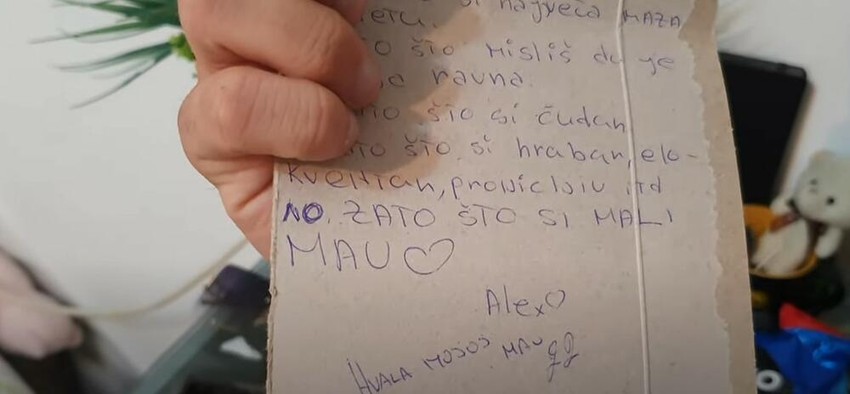 si najveća MAZA
što misliš da je
ravna.
što si čudan
što si hraban, elo-
kventan, pronicljiv itd
NO. ZATO ŠTO SI MALI
MAU♡
Alex♡
HVALA MOJOJ MAU